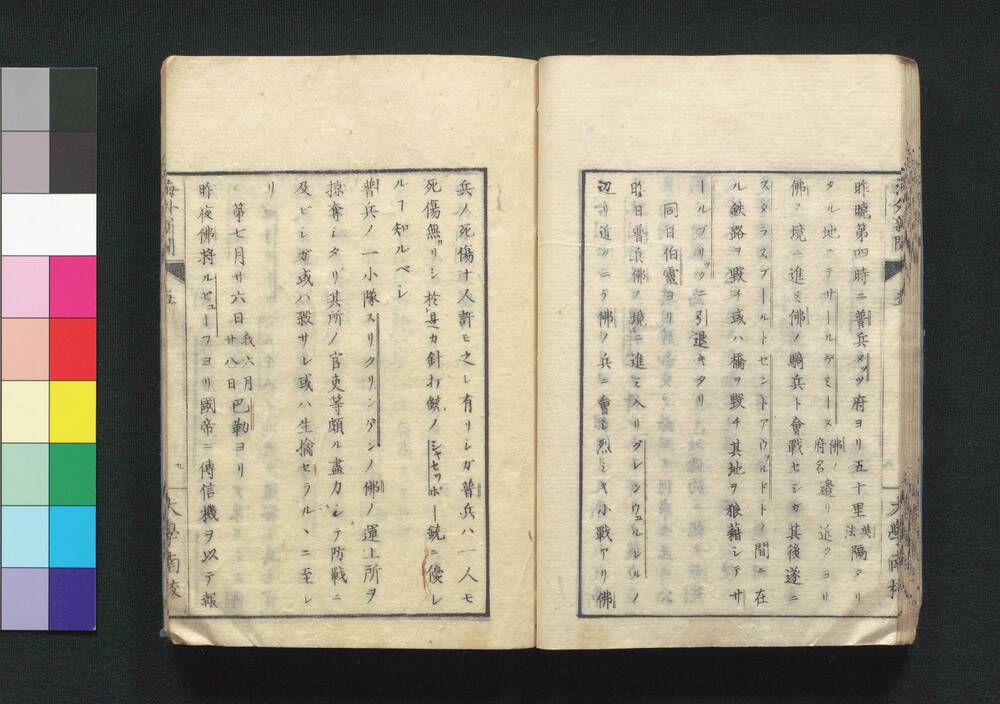 昨暁第四時ニ普兵メッツ府ヨリ五十里英法隔タリ
タル地ニテサールゲミースノ佛ノ府名邉リ近クヨリ
佛ノ境ニ進ミ佛ノ騎兵ト會戰セシガ其後遂ニ
スタラスブールトセントアウヴルドトノ間ニ在
ル鉄路ヲ毀チ或ハ橋ヲ毀チ其地ヲ狼藉シテサ
ールブリッツニ引退キタリ
同日伯靈ヨリ
昨日普兵佛ノ境ニ進ミ入リグレンウュルレルノ
辺リ近クニテ佛ノ兵ニ會シ烈シキ小戰アリ佛
兵ノ死傷十人許モ之レ有リシガ普兵ハ一人モ
死傷無リシ於是カ針打銃ノシャセッポー銃ニ優レ
ルヿ知ルベシ
普兵ノ一小隊スリクリンゲンノ佛ノ運上所ヲ
掠奪シタリ其所ノ官吏等頗ル盡力シテ防戰ニ
及ビシガ或ハ殺サレ或ハ生擒セラルヽニ至レ
リ
第七月廿六日我六月廿八日巴勒ヨリ
昨夜佛將ルビューフヨリ國帝ニ傳信機ヲ以テ報
海外新聞
五
九
大學南校